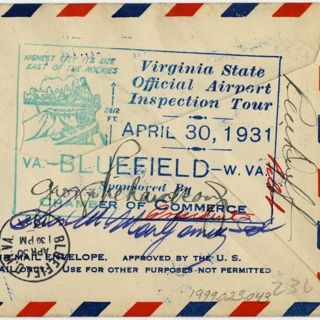 HIGHEST CITY ITS SIZE
EAST OF THE ROCKIES
2612
FT.
Virginia State
Official Airport
Inspection Tour
APRIL 30, 1931
VA.-BLUEFIELD-W. VA.
Sponsored By
CHAMBER OF COMMERCE
BLUEFIELD
APR
1 30 PM
VA.
MAIL ENVELOPE. APPROVED BY THE U. S.
USE FOR OTHER PURPOSES NOT PERMITTED
1999.023.043
236